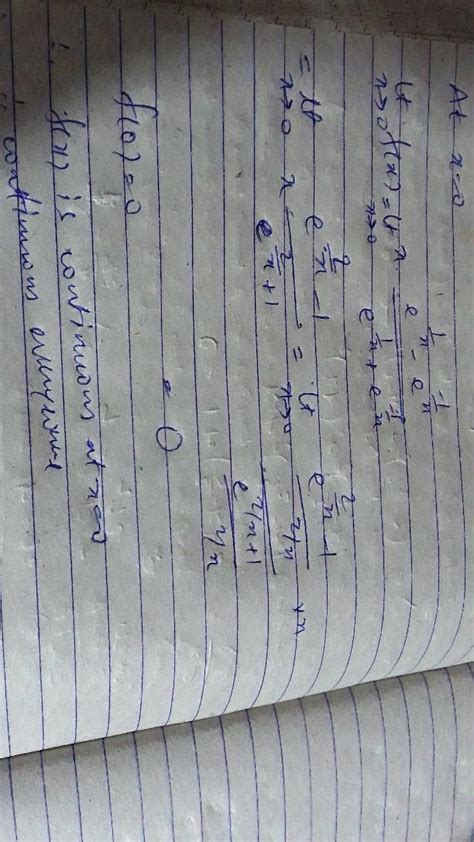 At x=0
Lt x→0 f(x) = Lt x→0 x (e^{1/x} - e^{-1/x})/(e^{1/x} + e^{-1/x})
= Lt x→0 x (e^{2/x} - 1)/(e^{2/x} + 1) = Lt x→0 ((e^{2/x} - 1)/(2/x))/((e^{2/x} + 1)/(2/x)) × x
= 0
f(0) = 0
∴ f(x) is continuous at x=0
continuous everywhere